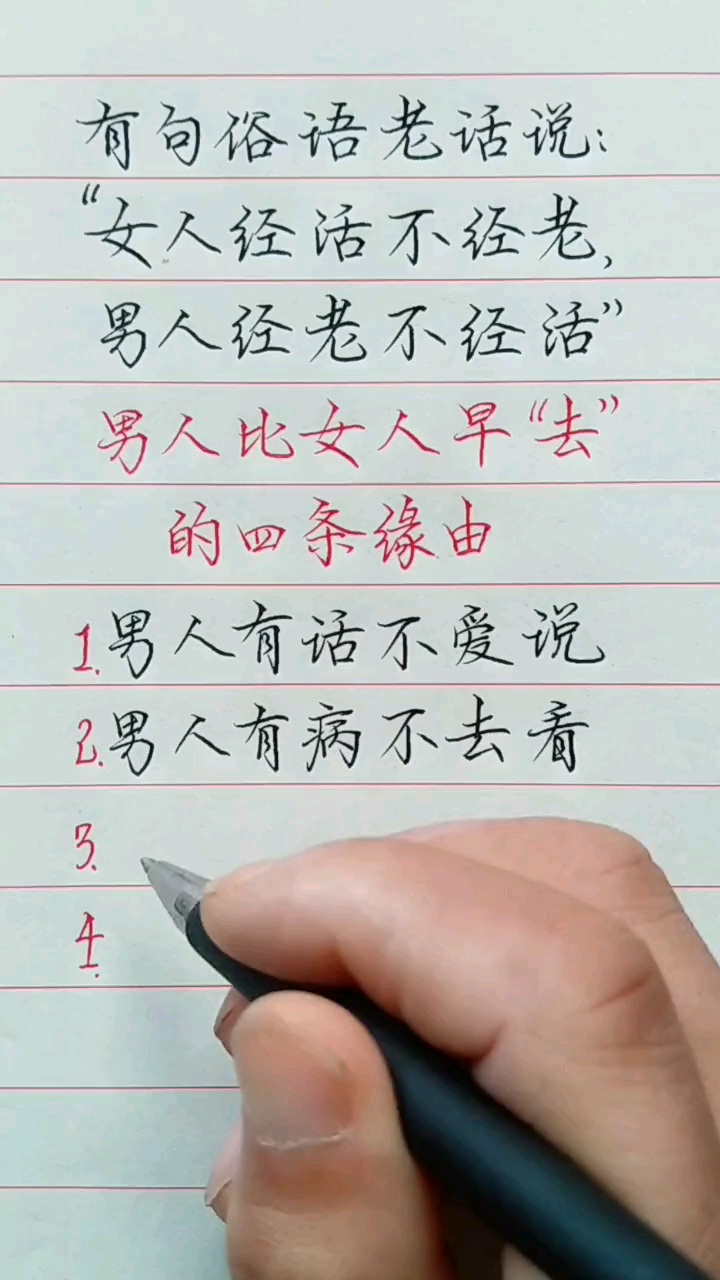 有句俗语老话说:
“女人经活不经老,
男人经老不经活”
男人比女人早“去”
的四条缘由
1.男人有话不爱说
2.男人有病不去看
3.
4.